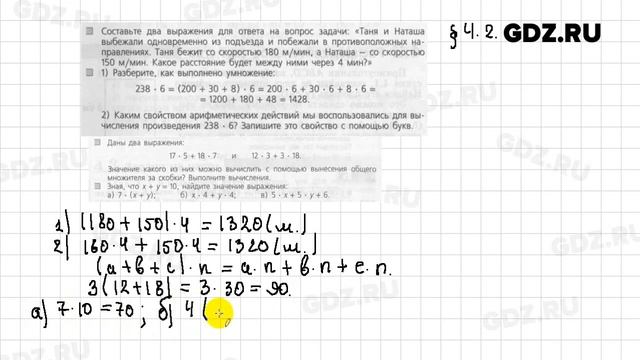 Составьте два выражения для ответа на вопрос задачи: «Таня и Наташа
выбежали одновременно из подъезда и побежали в противоположных на-
правлениях. Таня бежит со скоростью 180 м/мин, а Наташа – со скоростью
150 м/мин. Какое расстояние будет между ними через 4 мин?»
1) Разберите, как выполнено умножение:
238 · 6 = (200 + 30 + 8) · 6 = 200 · 6 + 30 · 6 + 8 · 6 =
= 1200 + 180 + 48 = 1428.
2) Каким свойством арифметических действий мы воспользовались для вы-
числения произведения 238 · 6? Запишите это свойство с помощью букв.
Даны два выражения:
17 · 5 + 18 · 7 и 12 · 3 + 3 · 18.
Значение какого из них можно вычислить с помощью вынесения общего
множителя за скобки? Выполните вычисления.
Зная, что x + y = 10, найдите значение выражения:
а) 7 · (x + y); б) x · 4 + y · 4; в) 5 · x + 5 · y + 6.
§ 4.2. GDZ.RU
1) (180 + 150) · 4 = 1320 (м.)
2) 180 · 4 + 150 · 4 = 1320 (м.)
(a + b + c) · n = a · n + b · n + c · n.
3 (12 + 18) = 3 · 30 = 90.
а) 7 · 10 = 70; б) 4 (
GDZ.RU